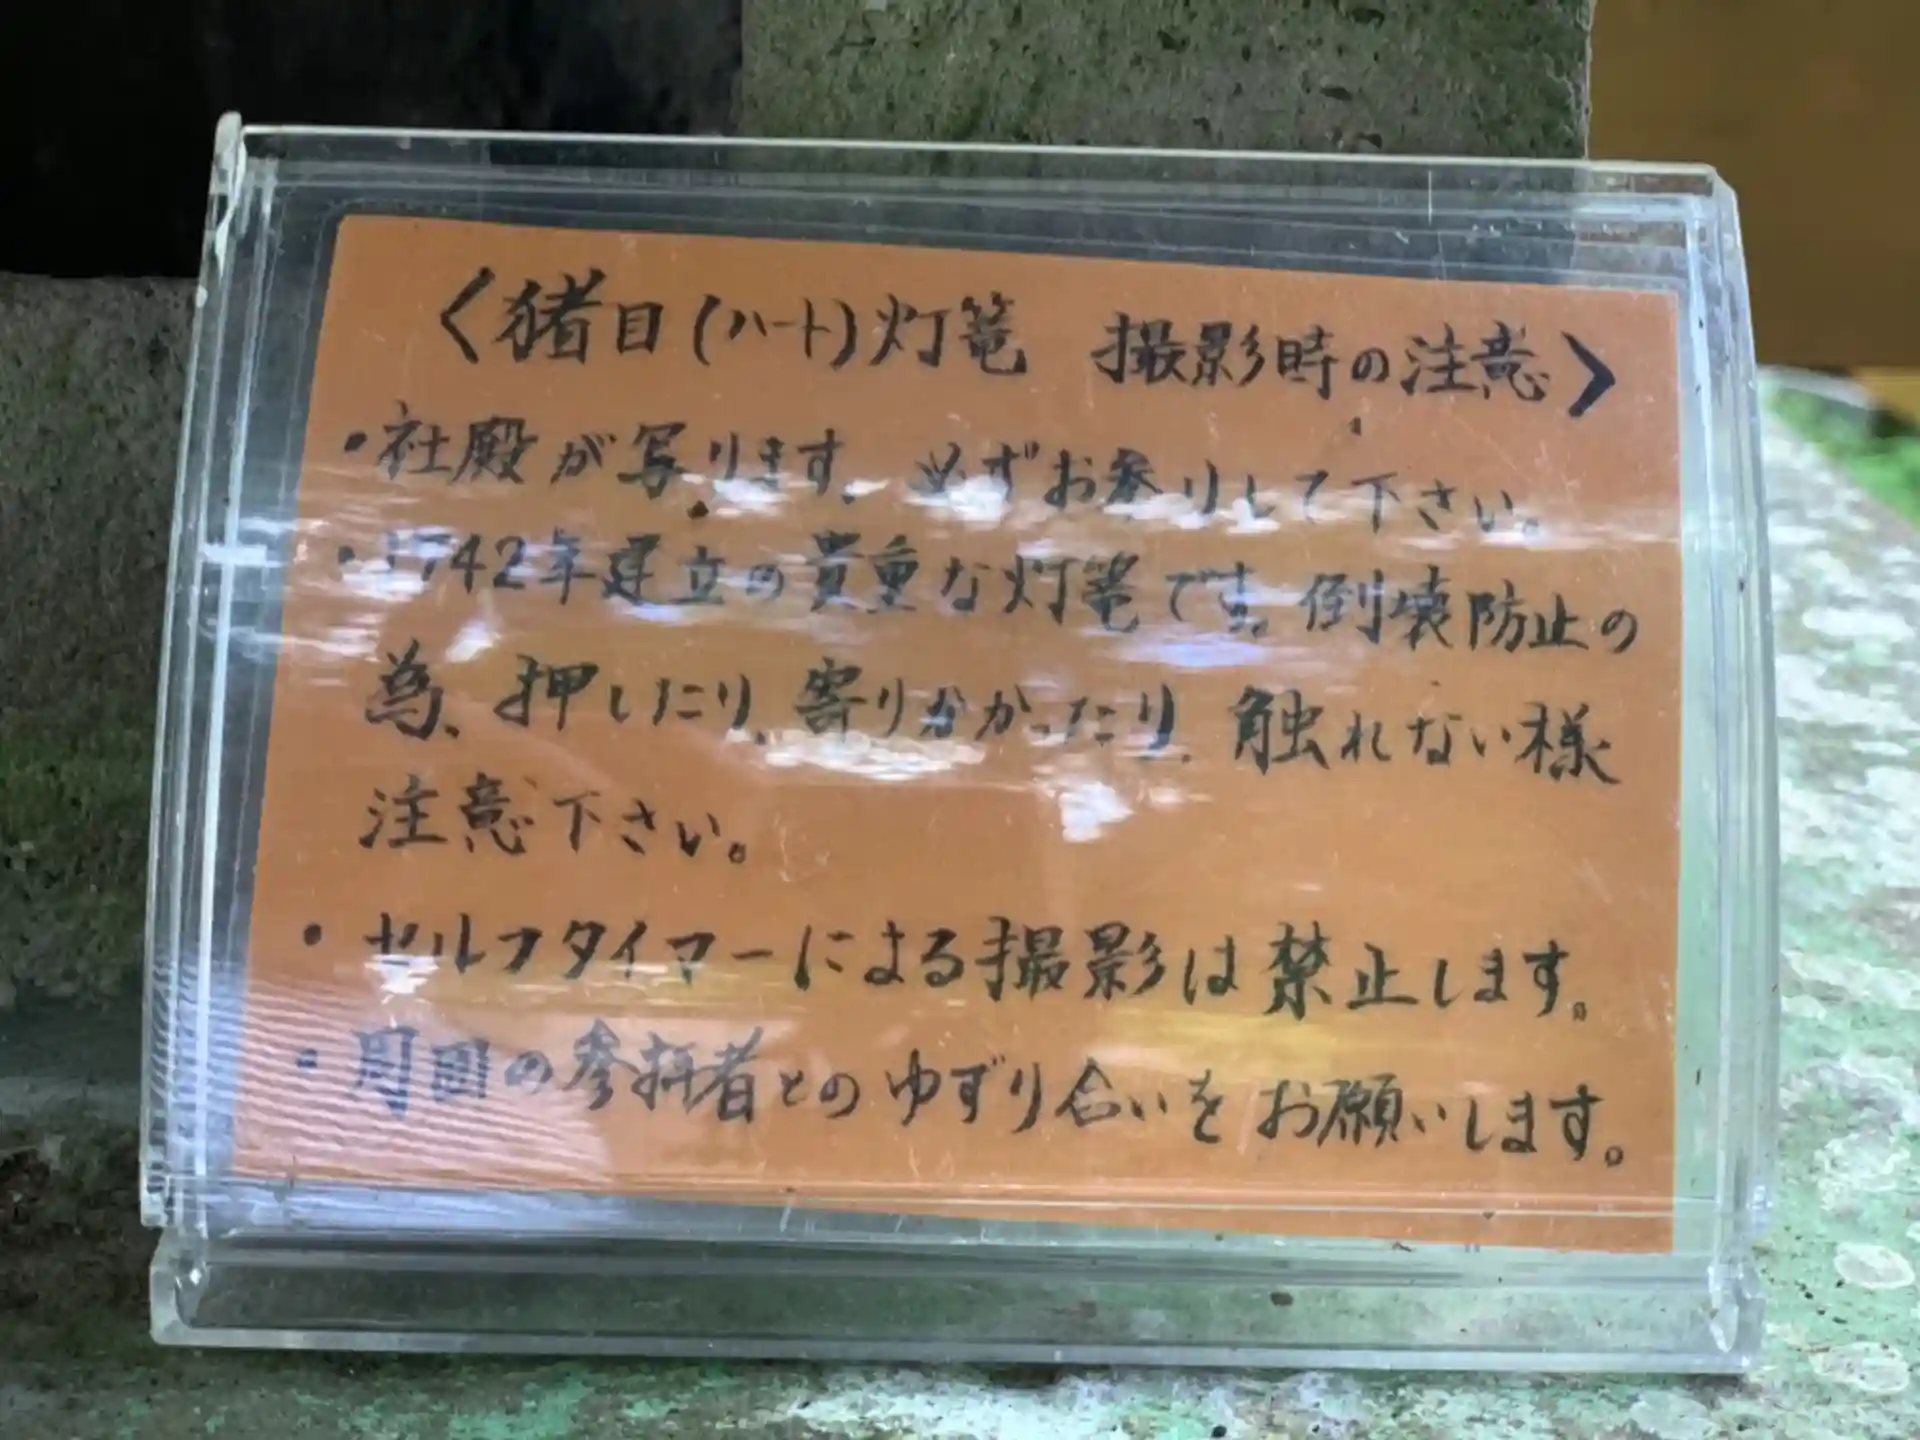 〈猪目(ハート)灯篭 撮影時の注意〉
・社殿が写ります。必ずお参りして下さい。
・1742年建立の貴重な灯篭です。倒壊防止の
為、押したり、寄りかかったり、触れない様
注意下さい。
・セルフタイマーによる撮影は禁止します。
・周囲の参拝者とのゆずり合いをお願いします。